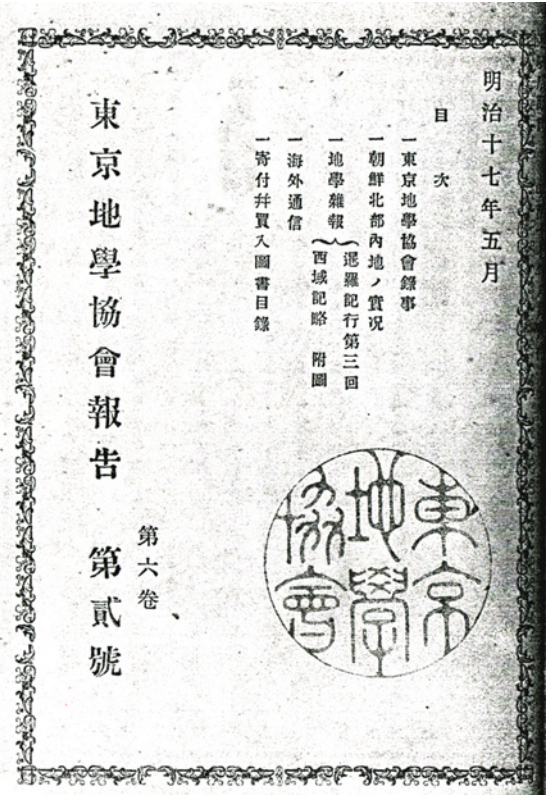 明治十七年五月
目次
一東京地學協會錄事
一朝鮮北部內地ノ實況
一地學雜報
暹羅記行第三回
西域記略 附圖
一海外通信
一寄付幷買入圖書目錄
東京地學協會
第六卷
東京地學協會報告 第貳號